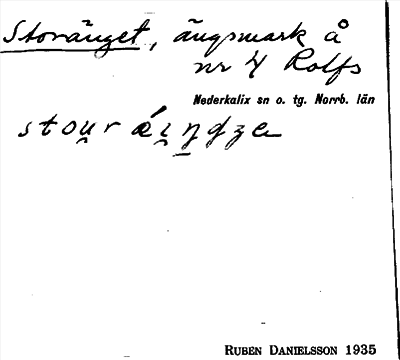 Storänget, ängsmark å
nr 4 Rolfs
Nederkalix sn o. tg. Norrb. län
stou̯r ǽi̯ŋ̠dʒe
RUBEN DANIELSSON 1935